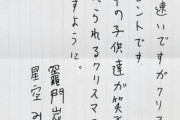 速いですがクリ
ントです
の子供達が笑
えられるクリスマ
すように。
竈門炭
星空み